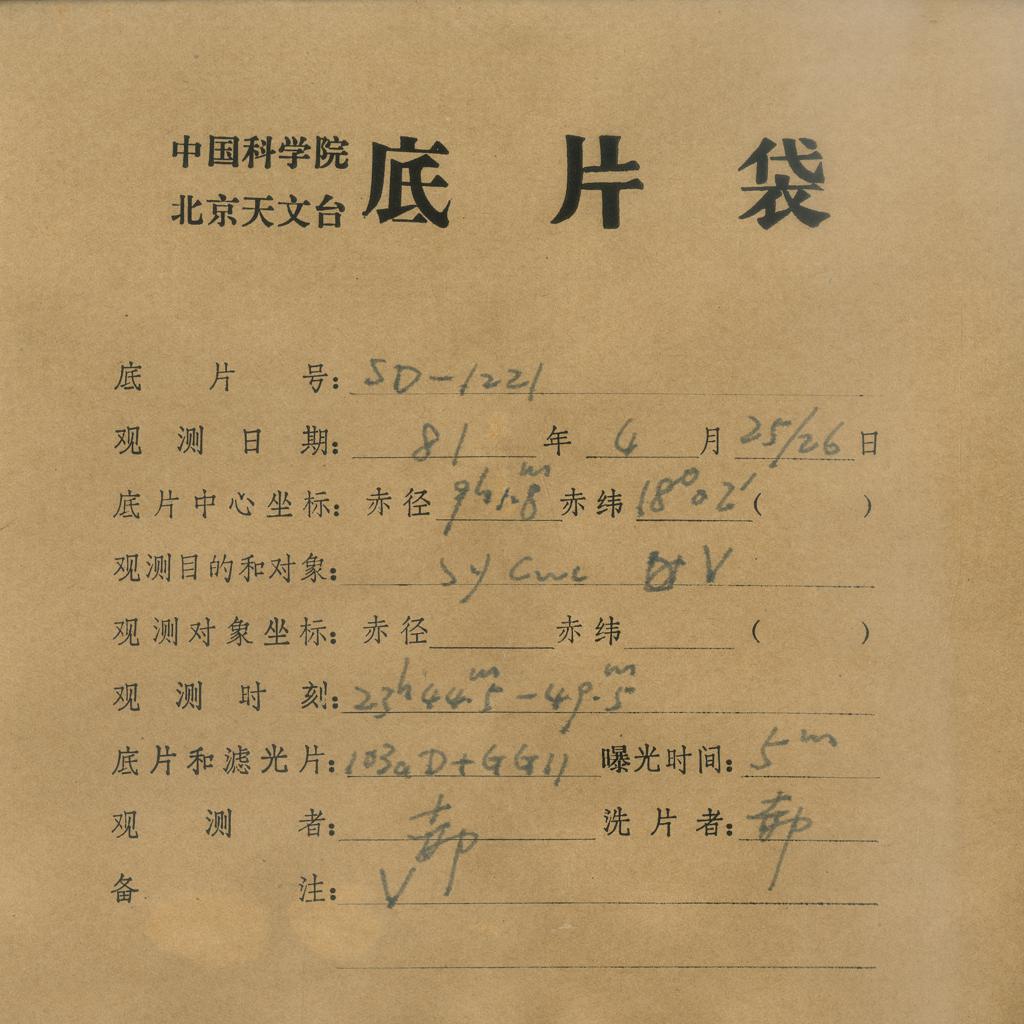 中国科学院
北京天文台
底片袋
底片号：SD-1221
观测日期：81年4月25/26日
底片中心坐标：赤径9h1.8m赤纬18°02′(   )
观测目的和对象：SY Cnc V
观测对象坐标：赤径   赤纬   (   )
观测时刻：23h44m.5-49m.5
底片和滤光片：103aD+GG11 曝光时间：5m
观测者：   洗片者：
备注：V